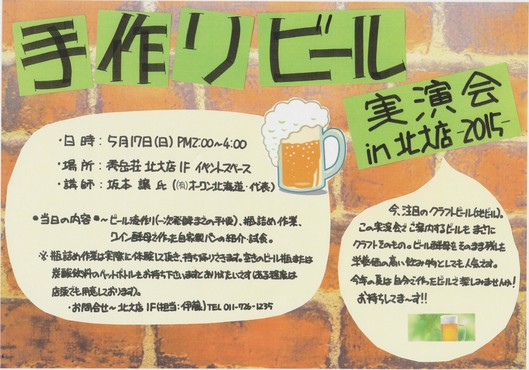 手作りビール
実演会
in 北大店 -2015-
・日時：5月17日(日) PM2:00～4:00
・場所：秀岳荘 北大店 1F イベントスペース
・講師：坂本 譲 氏 (㈲オーワン北海道・代表)
●当日の内容●～ビール液作り(一次発酵までの手順)、瓶詰め作業、
ワイン酵母で作った自家製パンの紹介・試食。
※瓶詰め作業は実際に体験して頂き、持ち帰りできます。空きのビール瓶または
炭酸飲料のペットボトルをお持ち下さいますとありがたいです(ある程度は
店頭でも用意しております)。
・お問合せ～北大店 1F(担当：伊藤) TEL 011-726-1235
今、注目のクラフトビール(地ビール)。
この実演会でご案内するビールも まさに
クラフトそのもの。ビール酵母をそのまま残した
栄養価の高い飲み物としても人気です。
今年の夏は自分で作ったビールで楽しみませんか!
お待ちしてま～す!!